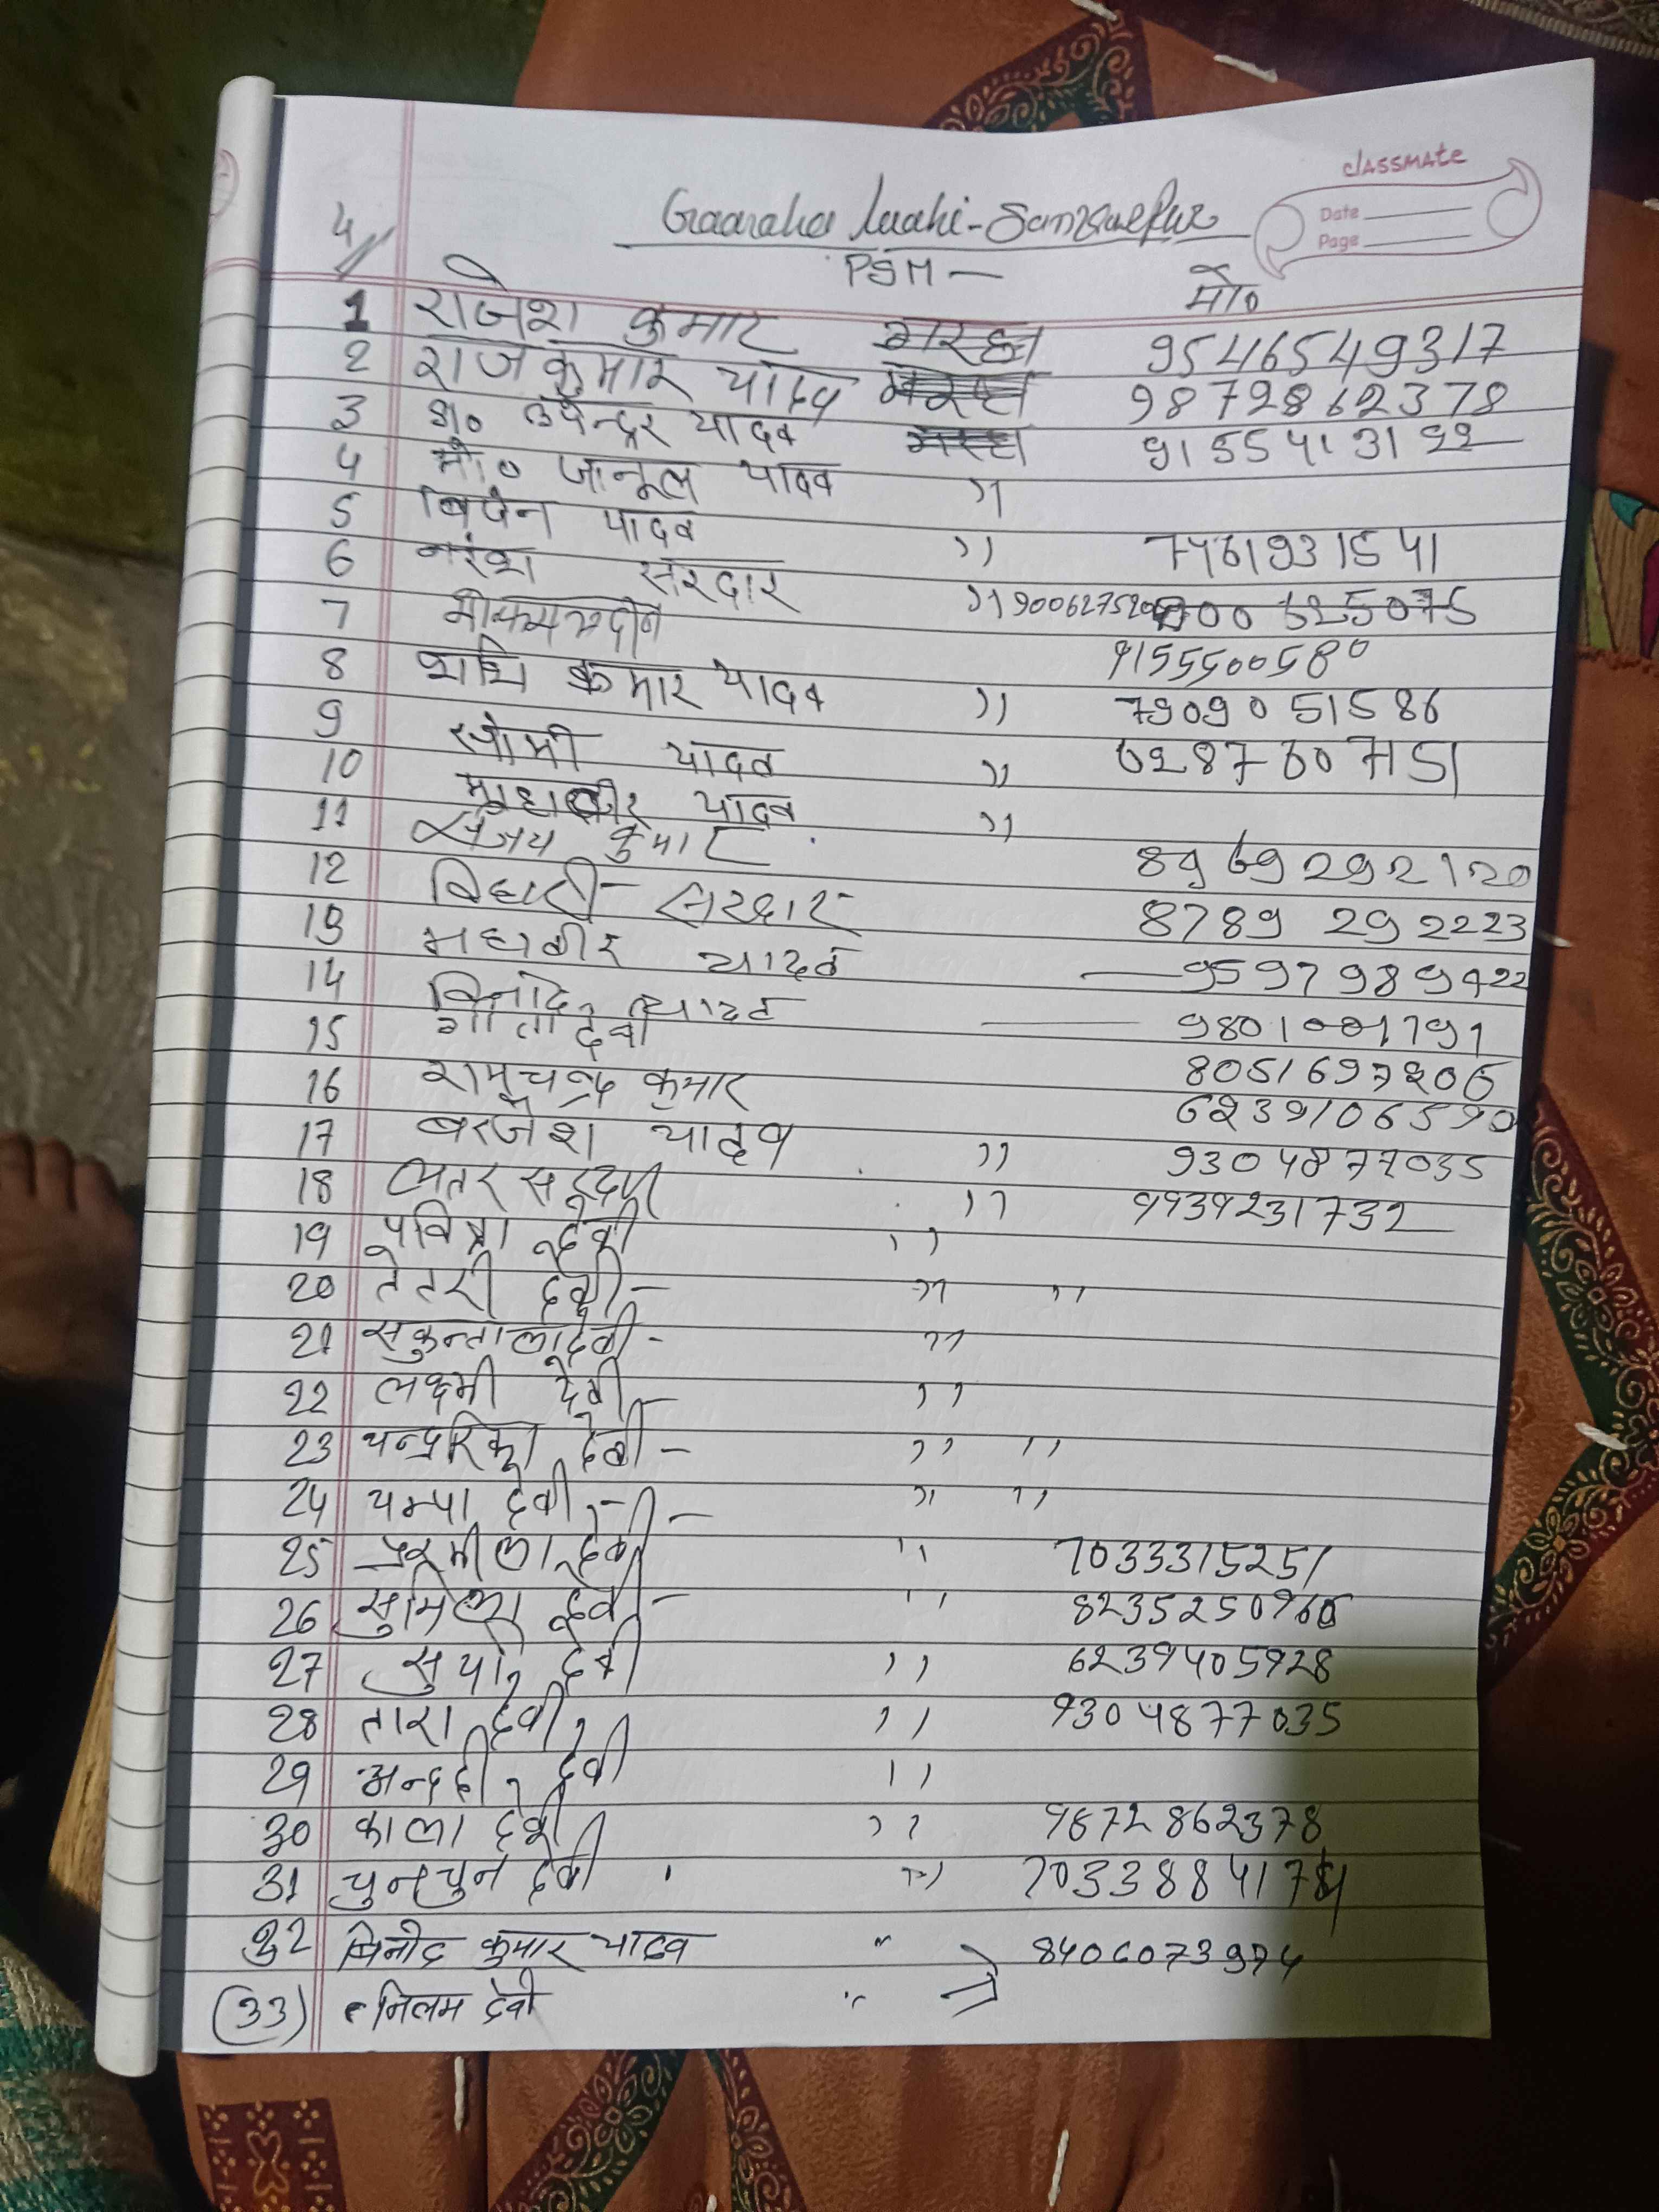 classmate
Date
Page
4
PSM —
मो०
1 राजेश कुमार 9546549317
2 राजकुमार यादव 9872862378
3 श्री० उपेन्द्र यादव 9155413122
4 मो० यादव ,,
5 विपेन यादव ,, 7461931541
6 नरेश सरदार ,, 9006275
7 9155500580
8 शशि कुमार यादव ,, 7909051586
9 स्वामी यादव ,, 6287607151
10 महावीर यादव ,,
11 संजय कुमार 8969292120
12 बिहारी सरदार 8789 292223
13 महावीर यादव — 9597989422
14 विनोद यादव — 9801001791
15 गीता देवी 8051697206
16 रामचन्द्र कुमार 6239106590
17 बरजेश यादव ,, 9304877035
18 ,, 9939231732
19 पवित्रा देवी ,,
20 तेतरी देवी — ,, ,,
21 सकुन्तला देवी - ,,
22 लक्ष्मी देवी — ,,
23 चन्द्रिका देवी — ,, ,,
24 चम्पा देवी — ,, ,,
25 प्ररमीला देवी — ,, 7033315251
26 देवी — ,, 8235250960
27 देवी ,, 6239405928
28 तारा देवी ,, 9304877035
29 देवी ,,
30 काला देवी ,, 9872862378
31 चुनचुन देवी ,,
32 विनोद कुमार यादव ,, 8406073974
(33) निलम देवी ,,